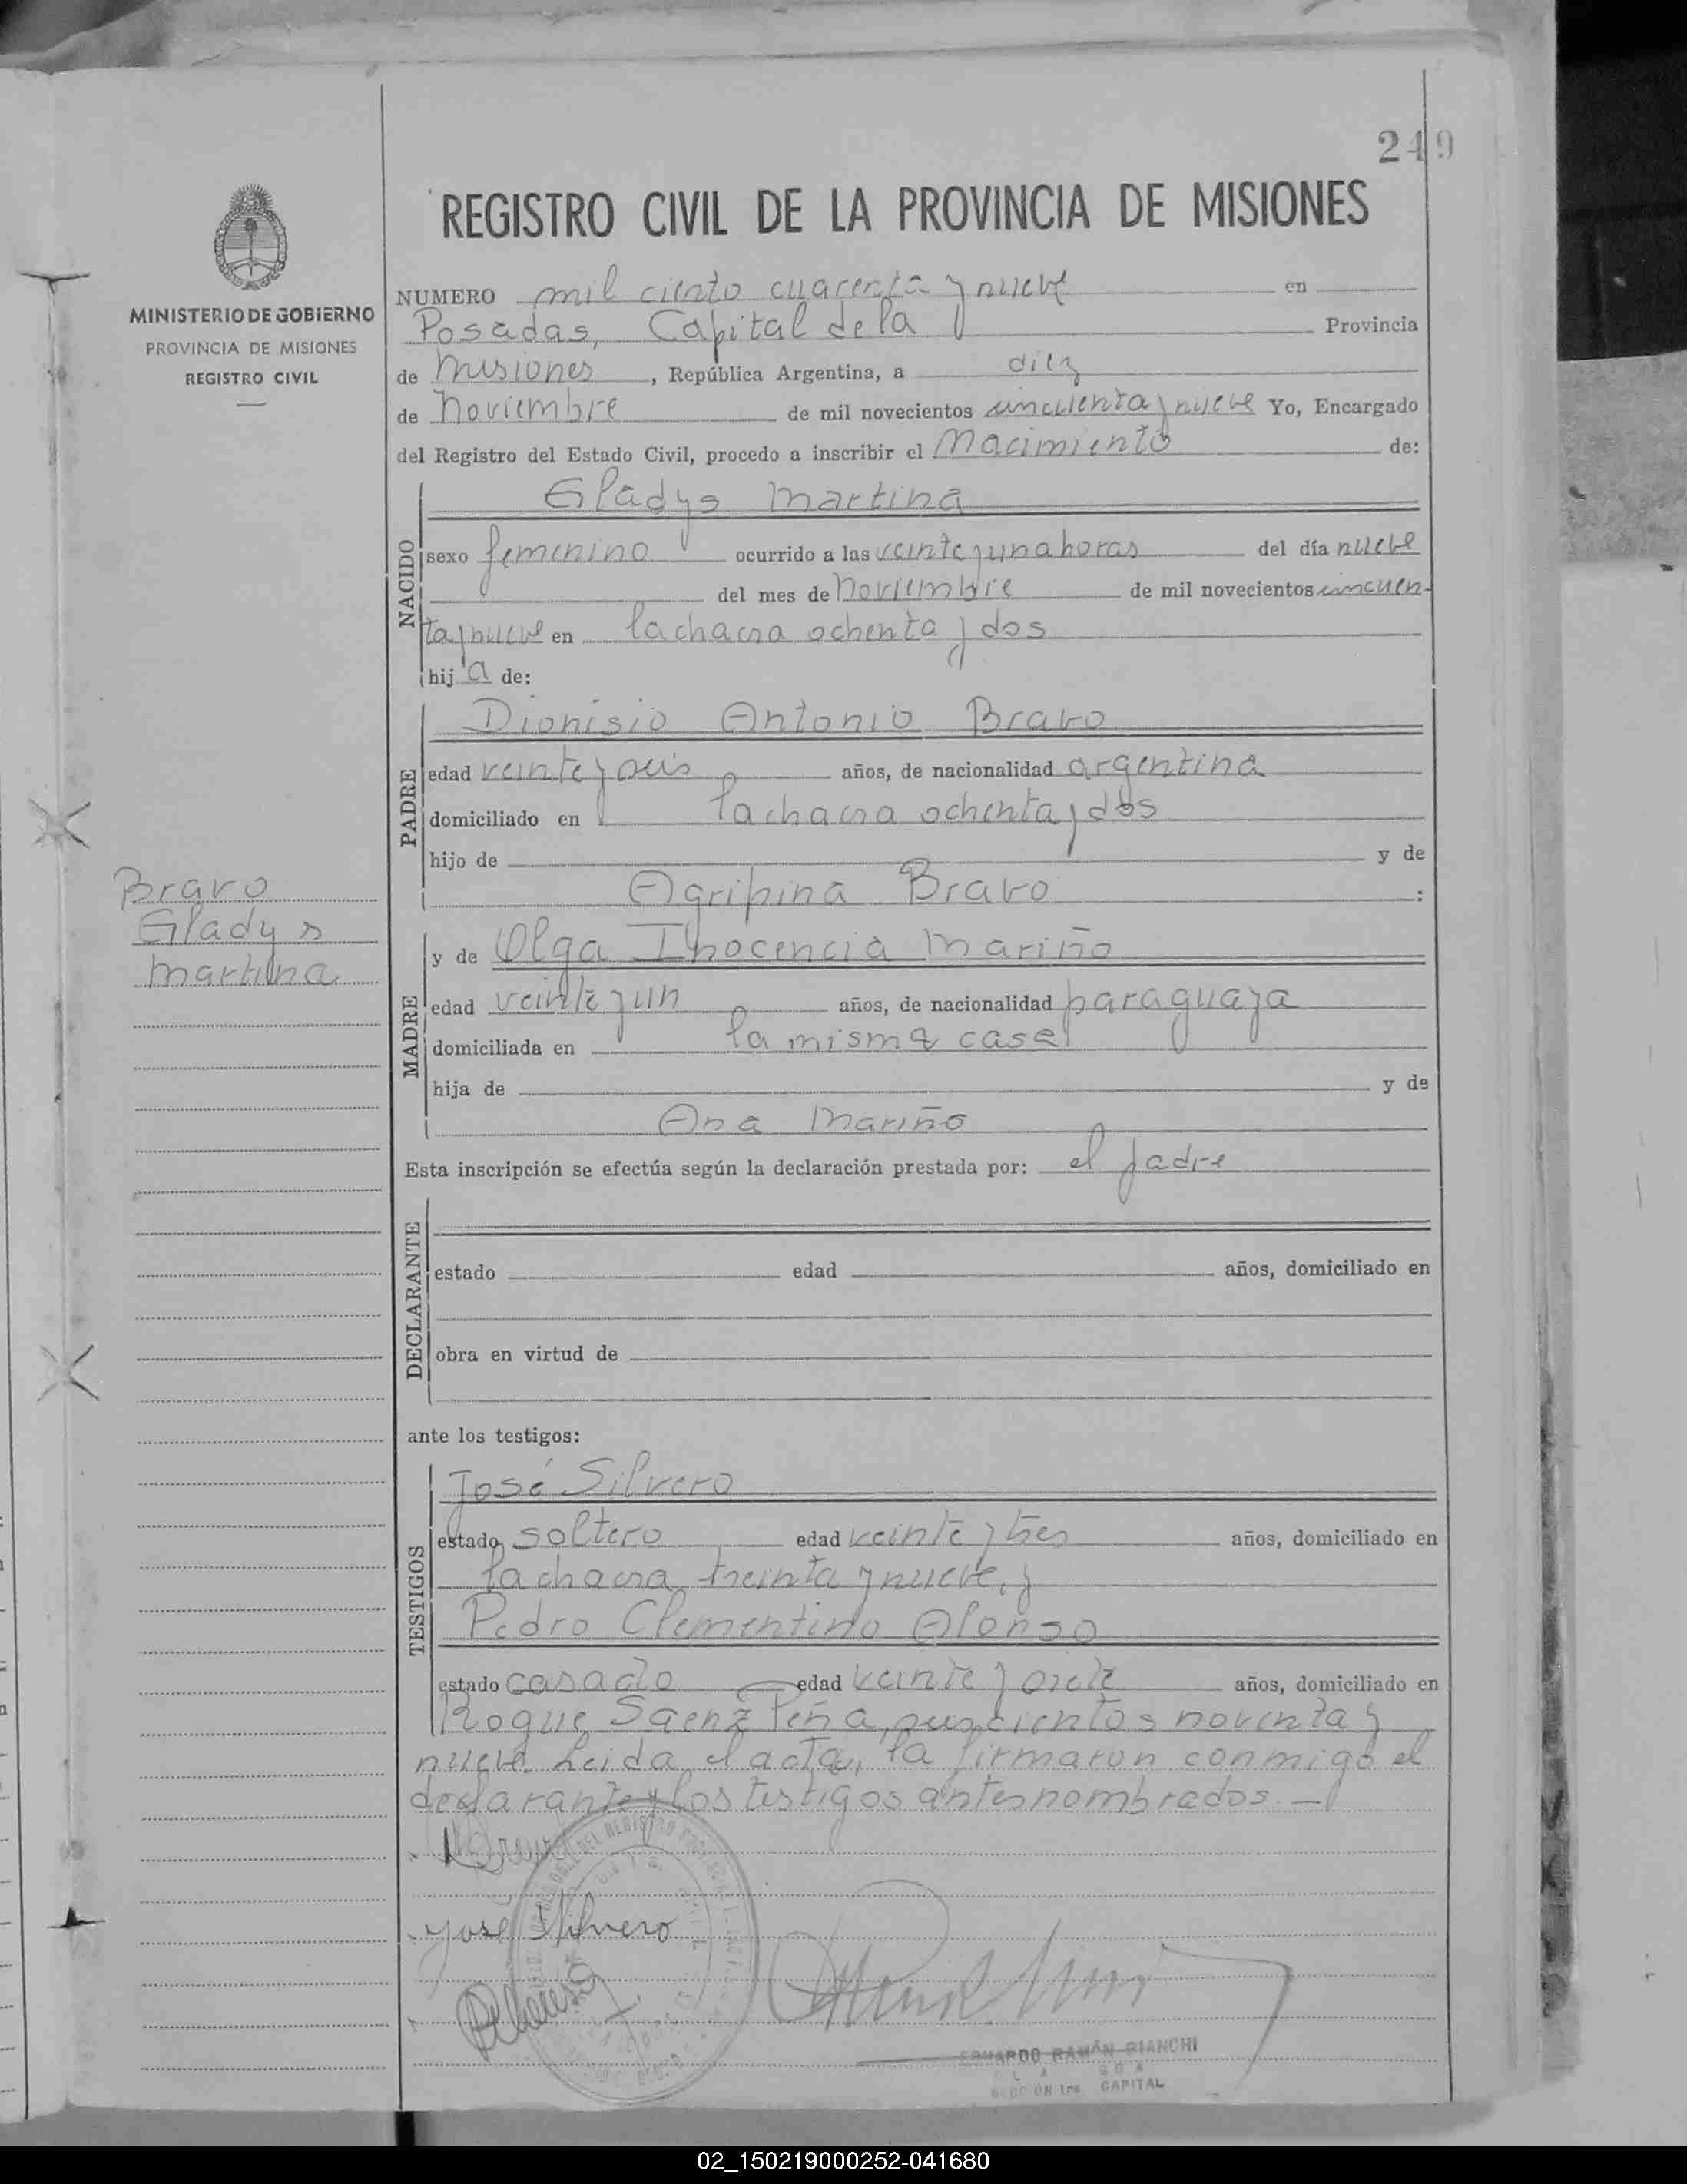 249
REGISTRO CIVIL DE LA PROVINCIA DE MISIONES
MINISTERIO DE GOBIERNO
PROVINCIA DE MISIONES
REGISTRO CIVIL
NUMERO mil ciento cuarenta y nueve en
Posadas, Capital de la Provincia
de Misiones, República Argentina, a diez
de noviembre de mil novecientos cincuenta y nueve Yo, Encargado
del Registro del Estado Civil, procedo a inscribir el Nacimiento de:
NACIDO
Gladys Martina
sexo femenino ocurrido a las veinte y una horas del día nueve
del mes de noviembre de mil novecientos cincuen-
ta y nueve en la chacra ochenta y dos
hija de:
PADRE
Dionisio Antonio Bravo
edad veinte y seis años, de nacionalidad argentina
domiciliado en la chacra ochenta y dos
hijo de y de
Agripina Bravo :
Bravo
Gladys
Martina
MADRE
y de Olga Inocencia Mariño
edad veinte y un años, de nacionalidad paraguaya
domiciliada en la misma casa
hija de y de
Ana Mariño
Esta inscripción se efectúa según la declaración prestada por: el padre
DECLARANTE
estado edad años, domiciliado en
obra en virtud de
ante los testigos:
TESTIGOS
José Silvero
estado soltero edad veinte y tres años, domiciliado en
la chacra treinta y nueve, y
Pedro Clementino Alonso
estado casado edad veinte y siete años, domiciliado en
Roque Saenz Peña, seiscientos noventa y
nueve. Leida el acta, la firmaron conmigo el
declarante y los testigos antes nombrados.—
José Silvero
EDUARDO RAMÓN BIANCHI
CAPITAL
02_150219000252-041680